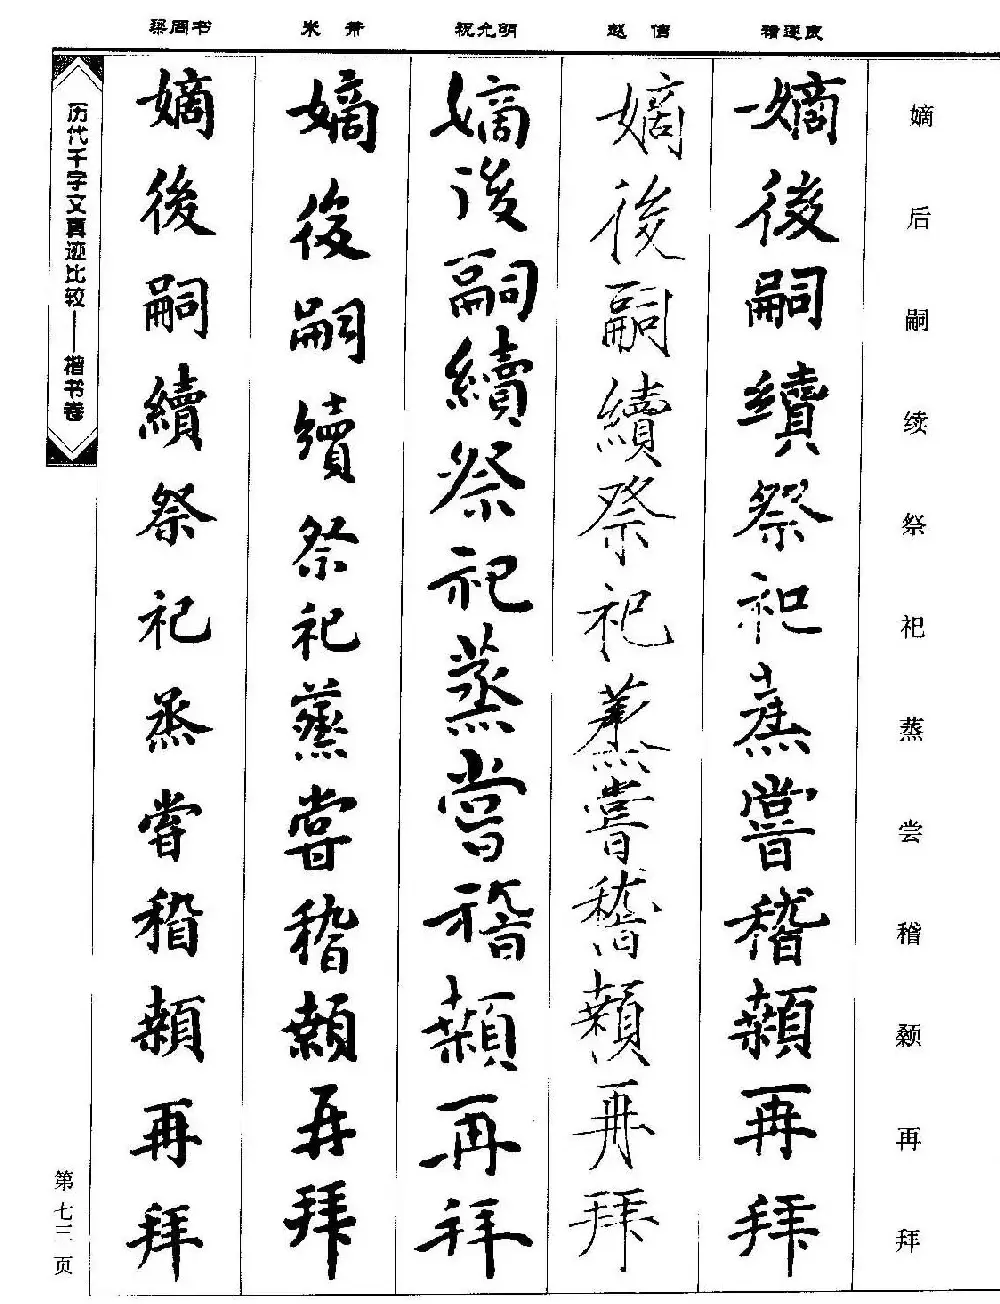 嫡后嗣续祭祀蒸尝稽颡再拜
嫡後嗣續祭祀蒸嘗稽顙再拜
嫡後嗣續祭祀蒸嘗稽顙再拜
祝允明
嫡後嗣續祭祀蒸嘗稽顙再拜
嫡後嗣續祭祀蒸嘗稽顙再拜
嫡後嗣續祭祀烝嘗稽顙再拜
历代千字文真迹比较——楷书卷
第七三页